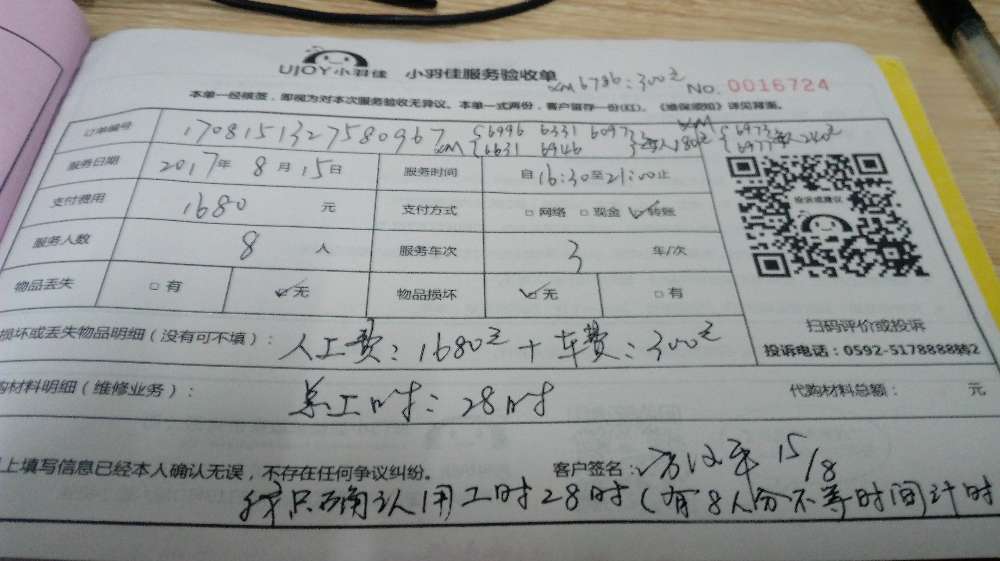 UJOY小羽佳 小羽佳服务验收单
XM6786:300元 No. 0016724
本单一经核签,即视为对本次服务验收无异议。本单一式两份,客户留存一份(红)。《维保须知》详见背面。
订单编号 1708151327580967 XM {6996 6331 6097 6631 6946} 每人180元 XM {6973 6977 每人240元
服务日期 2017年8月15日 服务时间 自16:30至21:00止
支付费用 1680 元 支付方式 □网络 □现金 ☑转账
投诉或建议
服务人数 8 人 服务车次 3 车/次
物品丢失 □有 ☑无 物品损坏 ☑无 □有
扫码评价或投诉
损坏或丢失物品明细(没有可不填): 人工费:1680元+车费:300元
投诉电话:0592-5178888转2
购材料明细(维修业务): 总工时:28时 代购材料总额: 元
上填写信息已经本人确认无误,不存在任何争议纠纷。 客户签名: 15/8
我只确认用工时28时(有8人分不等时间计时